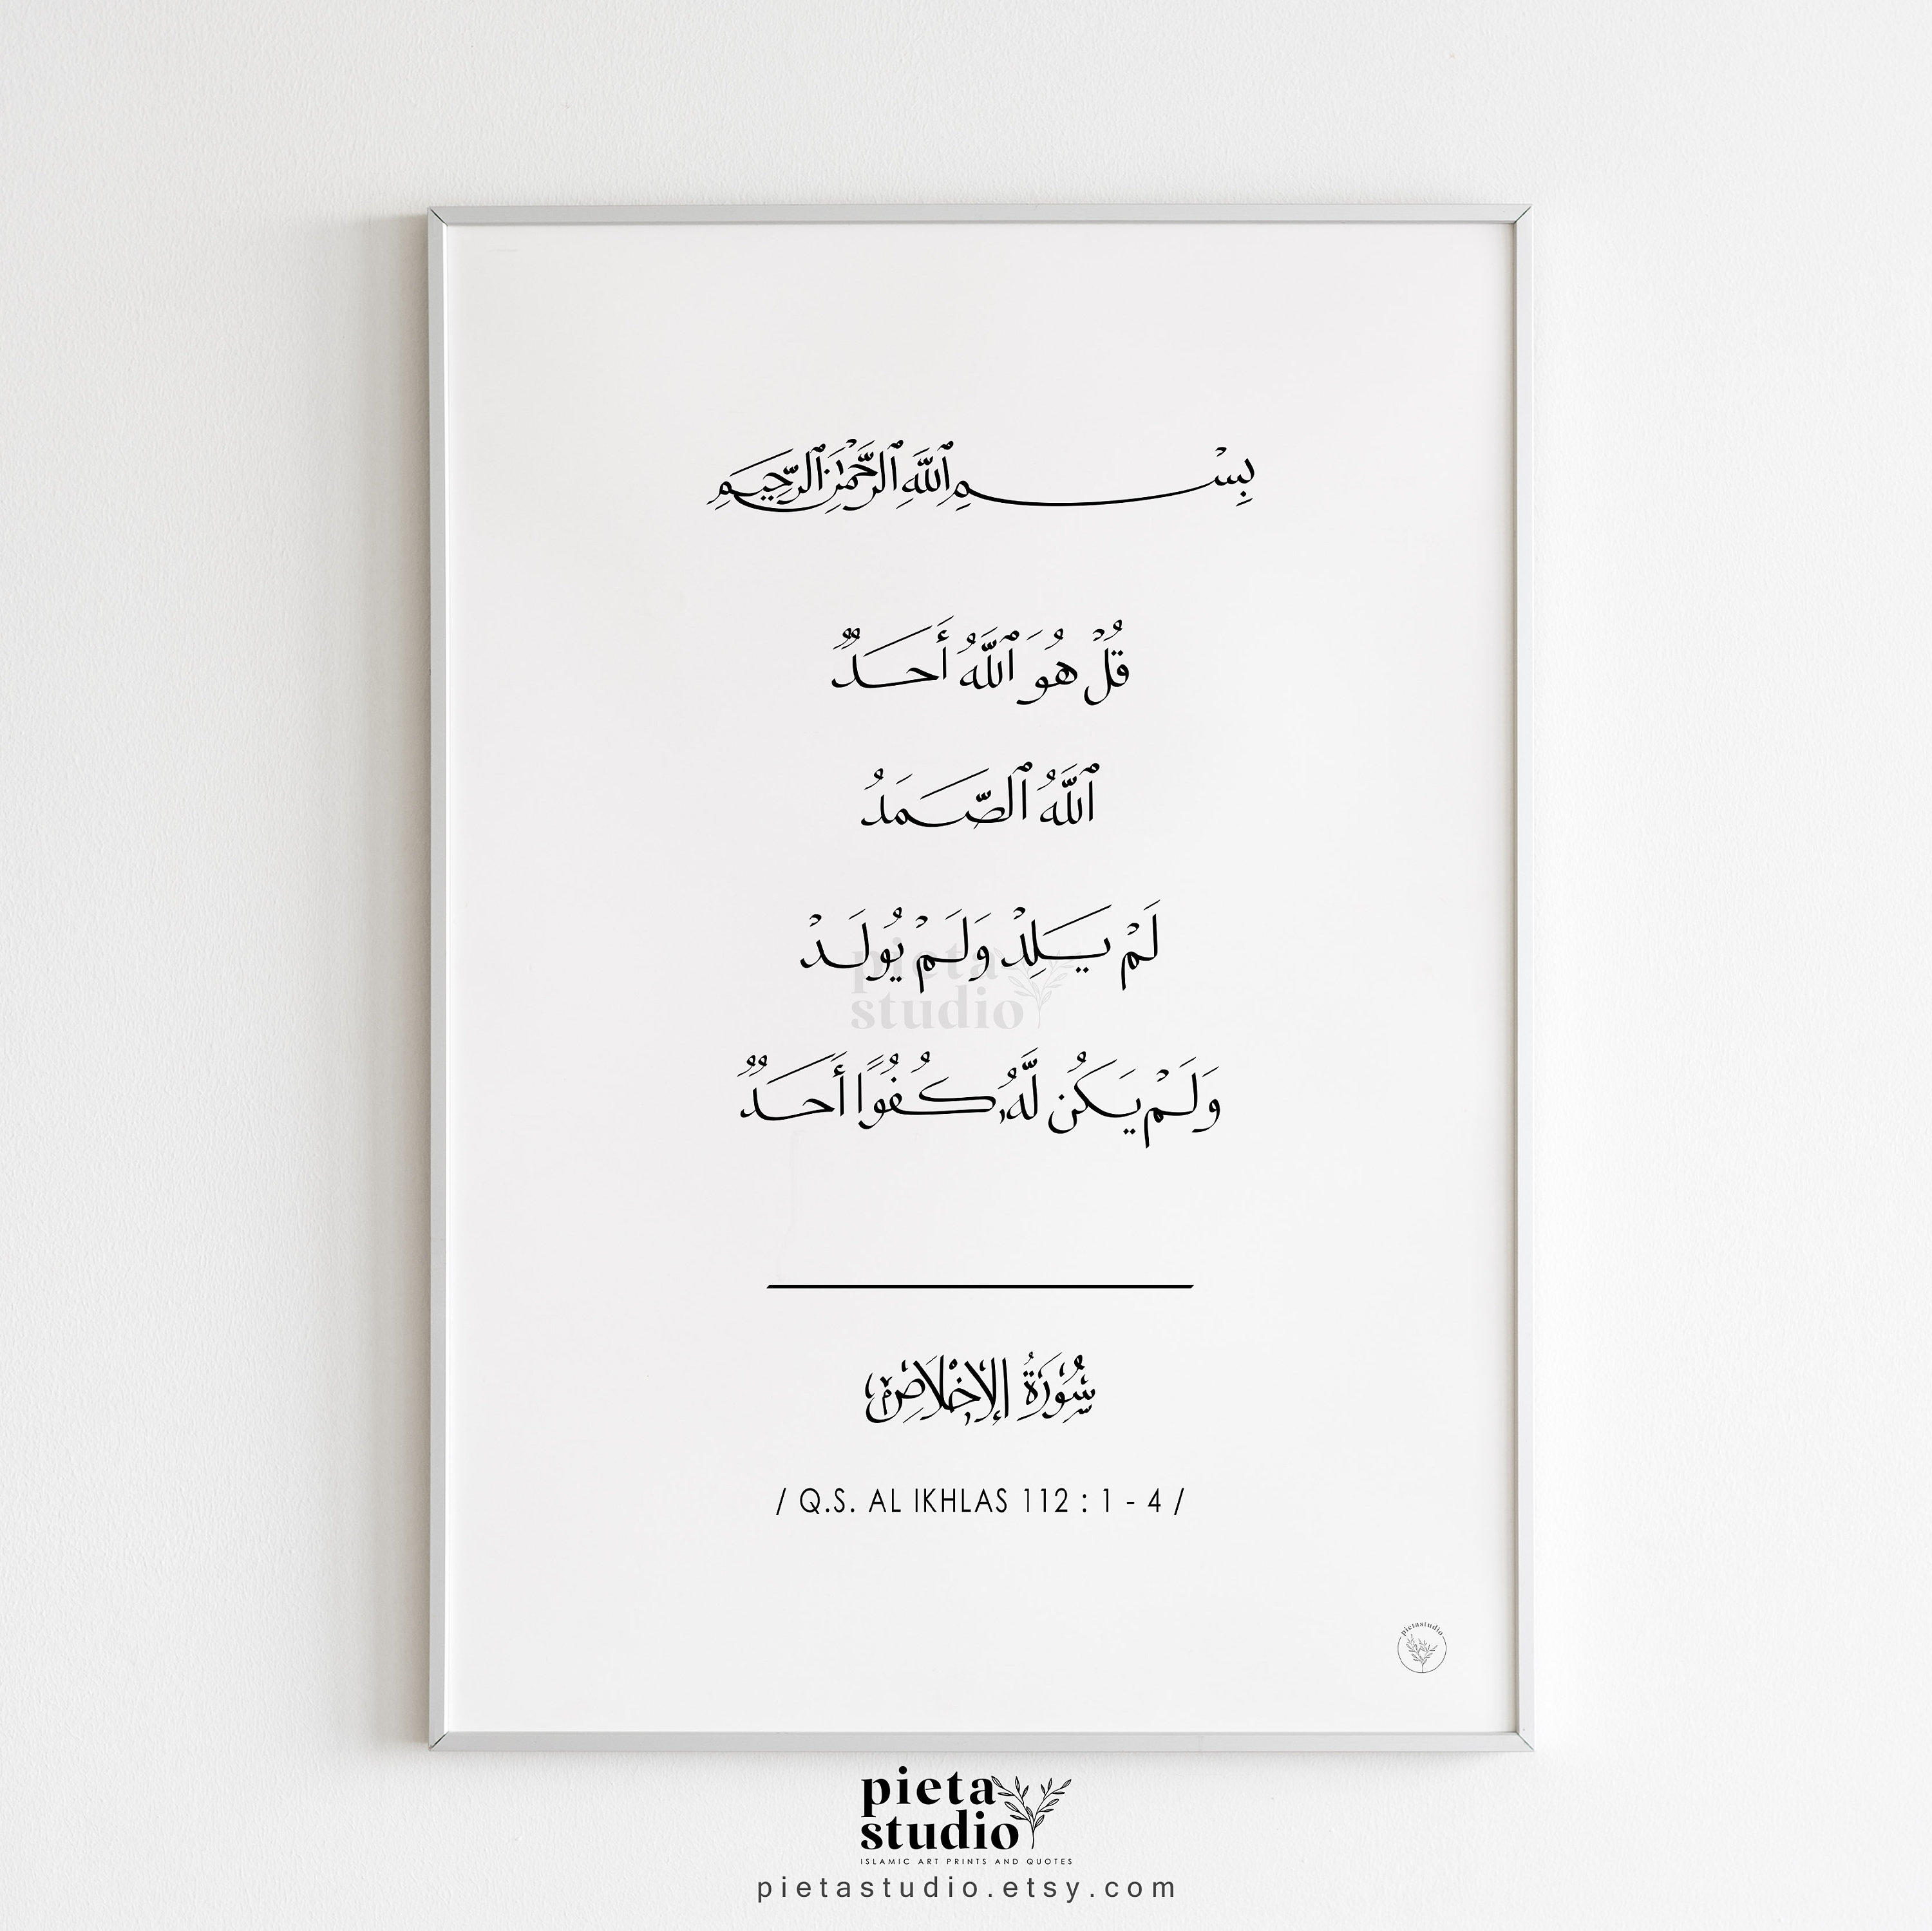 بِسْمِ ٱللَّهِ ٱلرَّحْمَٰنِ ٱلرَّحِيمِ
قُلْ هُوَ ٱللَّهُ أَحَدٌ
ٱللَّهُ ٱلصَّمَدُ
لَمْ يَلِدْ وَلَمْ يُولَدْ
pieta
studio
وَلَمْ يَكُن لَّهُۥ كُفُوًا أَحَدٌ
سُورَةُ الإِخْلَاصِ
/ Q.S. AL IKHLAS 112 : 1 - 4 /
pietastudio
pieta
studio
ISLAMIC ART PRINTS AND QUOTES
pietastudio.etsy.com